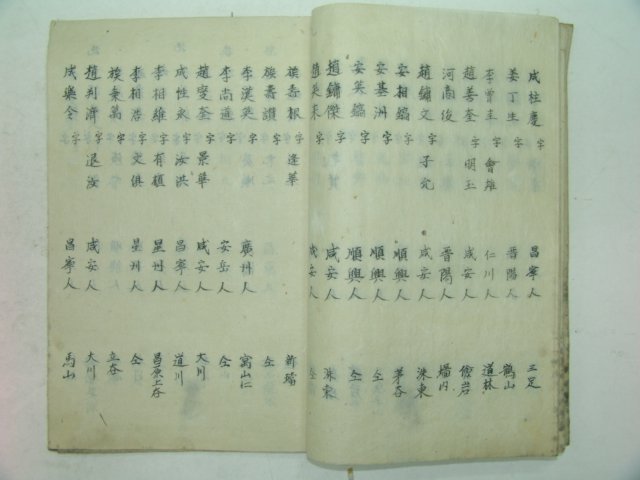 成柱慶 字 昌寧人 三足
姜丁生 字 晋陽人 鶴山
李曾圭 字 會雄 仁川人 道林
趙善奎 字 明玉 咸安人 儉岩
河南俊 字 晋陽人 墻內
趙鏞文 字 子允 咸安人 洙東
安相鎬 字 順興人 茅谷
安基洲 字 順興人 仝
安英鎬 字 順興人 仝
趙鏞傑 字 咸安人 洙東
趙英來 字 咸安人 仝
族壽根 字 逢華 新墻
族壽讚 字
李漢英 字 廣州人 寓山仁
李尚道 字 安岳人 仝
趙燮奎 字 景華 咸安人 大川
成性永 字 汝洪 昌寧人 道川
李相維 字 有楨 星州人 昌原上谷
李相浩 字 文俱 星州人 仝
族秉萬 字 立谷
趙判濟 字 退汝 咸安人 大川
成樂令 字 昌寧人 馬山